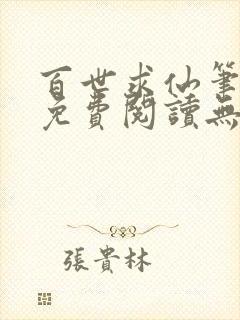 百世求仙筆
免費閱讀無
張貴林